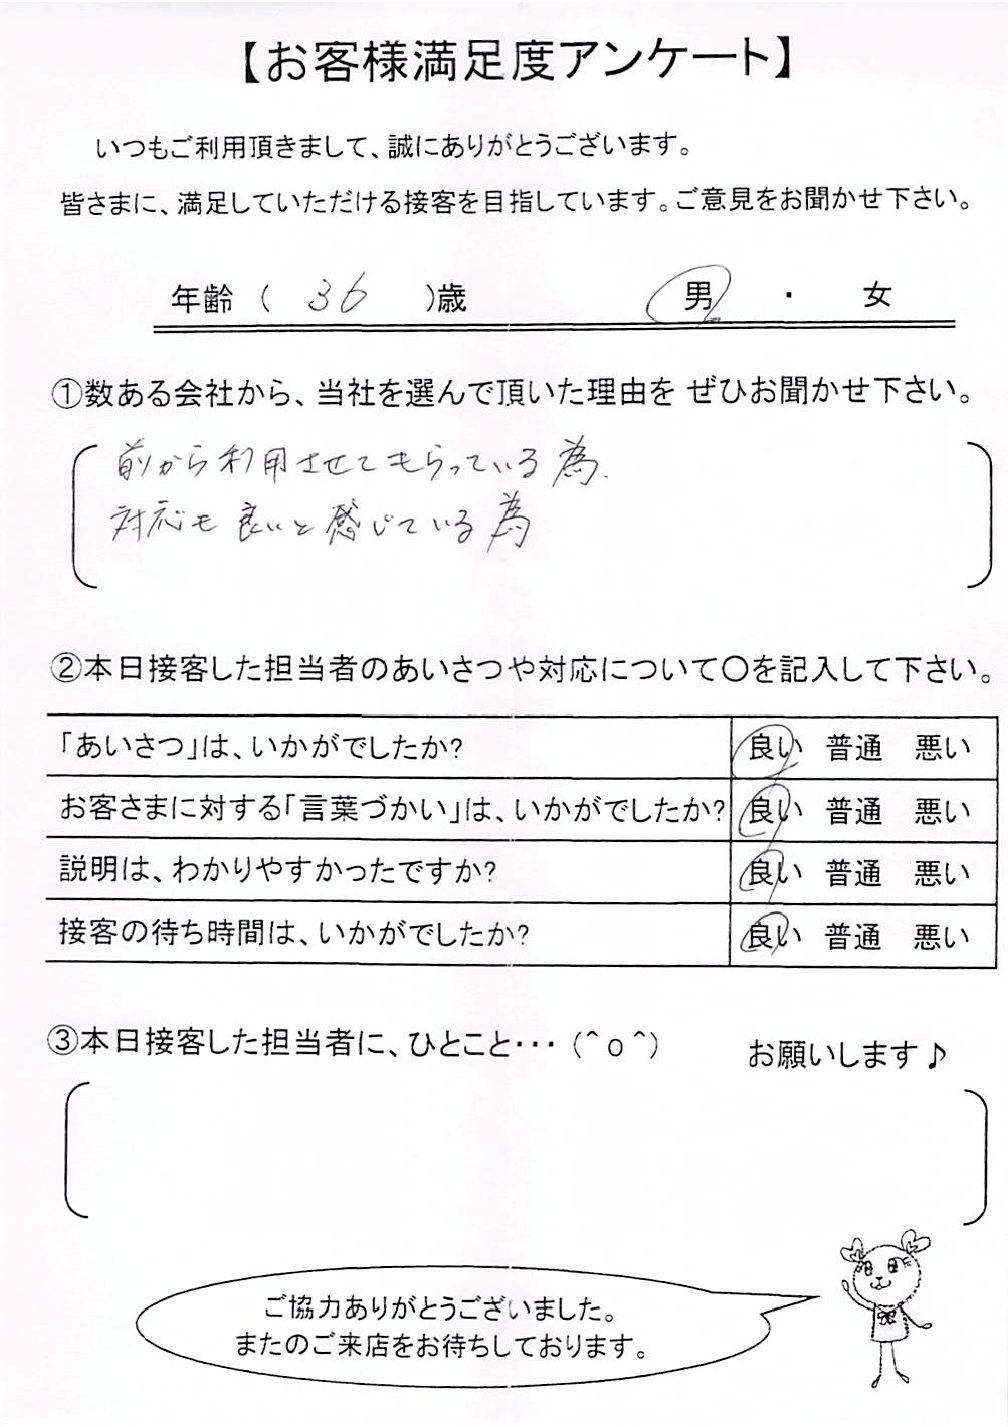 【お客様満足度アンケート】
いつもご利用頂きまして、誠にありがとうございます。
皆さまに、満足していただける接客を目指しています。ご意見をお聞かせ下さい。
年齢 ( 36 )歳 男 ・ 女
①数ある会社から、当社を選んで頂いた理由を ぜひお聞かせ下さい。
前から利用させてもらっている為.
対応も良いと感じている為
②本日接客した担当者のあいさつや対応について〇を記入して下さい。
「あいさつ」は、いかがでしたか? 良い 普通 悪い
お客さまに対する「言葉づかい」は、いかがでしたか? 良い 普通 悪い
説明は、わかりやすかったですか? 良い 普通 悪い
接客の待ち時間は、いかがでしたか? 良い 普通 悪い
③本日接客した担当者に、ひとこと・・・ (^o^) お願いします♪
ご協力ありがとうございました。
またのご来店をお待ちしております。